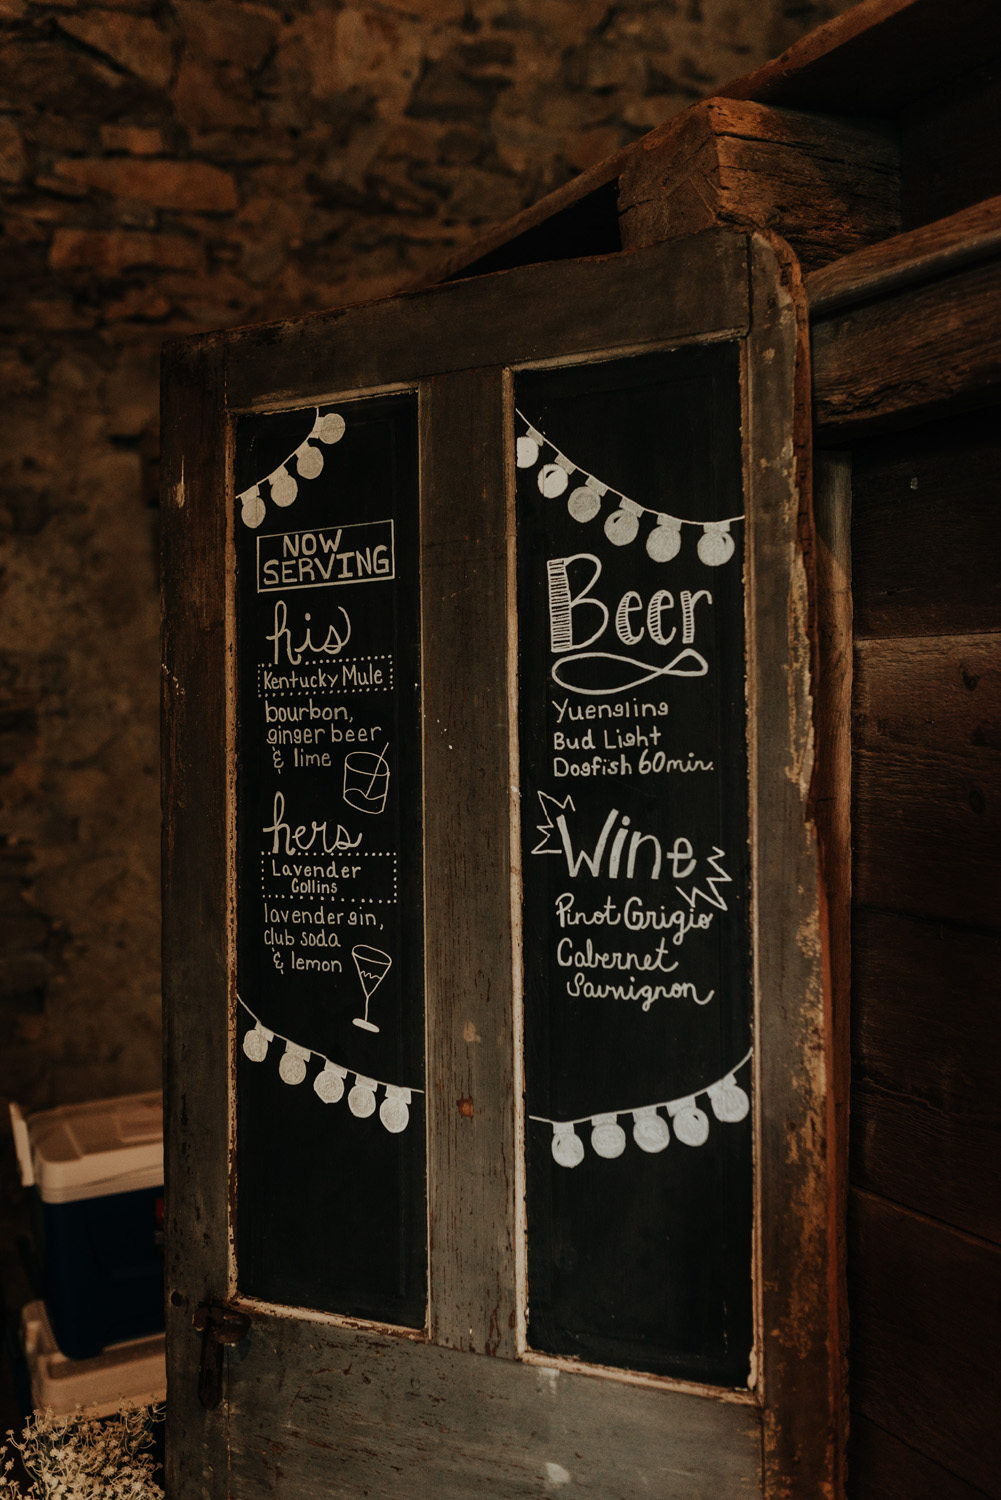 NOW
SERVING
his
Kentucky Mule
bourbon,
ginger beer
& lime
hers
Lavender
Collins
lavender gin,
club soda
& lemon
Beer
Yuengling
Bud Light
Dogfish 60min.
Wine
Pinot Grigio
Cabernet
Sauvignon